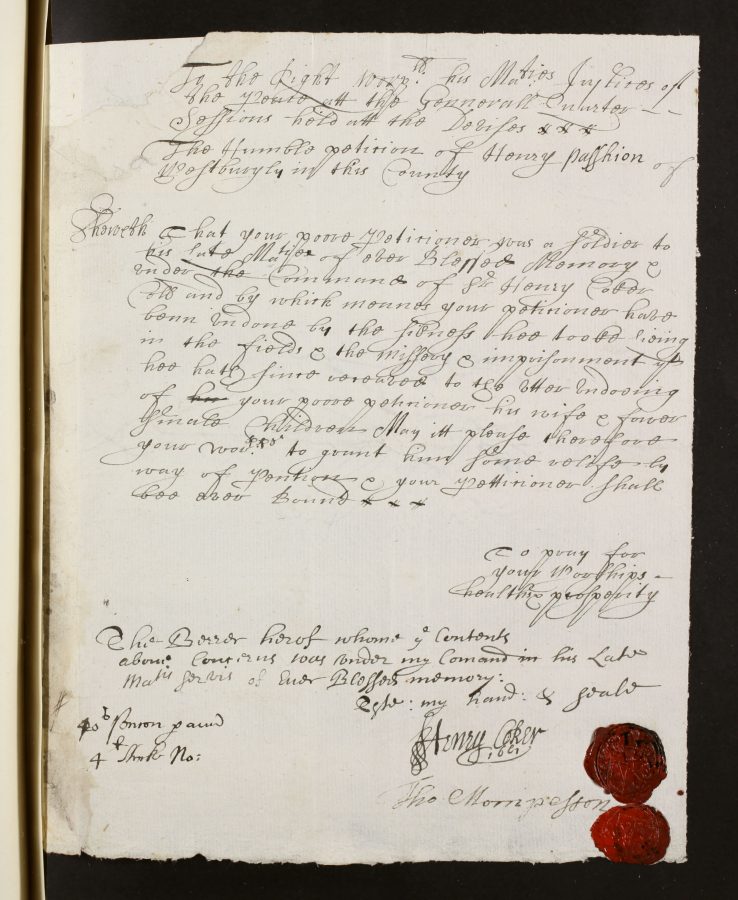 To the Right worp:ll his Maties Justices of
the Peace att the Gennerall Quarter
Sessions held att the Devises
The Humble peticion of Henry Passhion of
Westburyly in this County
Sheweth That your poore Peticioner was a soldier to
his late Matise of ever Blessed Memory &
under the Command of Sr Henry Coker
Coll and by which meanes your peticioner have
benn undone by the sicness hee tooke lieing
in the fields & the missery & imprisonment yt
hee hath since receaved to the utter undoeing
of her your poore peticioner his wife & fower
smale Children May itt please therefore
your worpps to grant him some relise by
way of Pention & your Petticioner shall
bee ever Bound
To pray for
your Worships
health & prosperity
The Berrer herof whome ye Contents
above Concerns was under my Comand in his Late
Matis servis of Ever Blessed memory:
Teste: my hand: & seale
Henry Coker
1661
40s penson paund
4th Shroke No:
Tho Mompesson